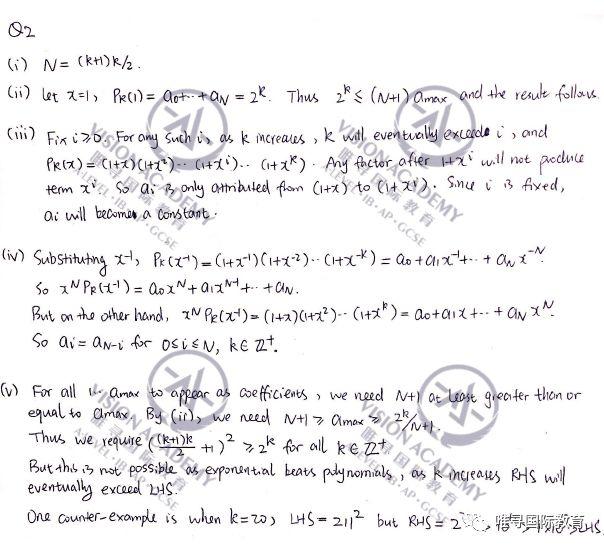 Q2
(i) N = (k+1)k/2.
(ii) let x=1, Pk(1) = a0+..+aN = 2^k. Thus 2^k ≤ (N+1) amax and the result follows.
(iii) Fix i≥0. For any such i, as k increases, k will eventually exceeds i, and
Pk(x) = (1+x)(1+x²)..(1+x^i)..(1+x^k). Any factor after 1+x^i will not produce
term x^i. So ai is only attributed from (1+x) to (1+x^i). Since i is fixed,
ai will becomes a constant.
(iv) Substituting x^-1, Pk(x^-1) = (1+x^-1)(1+x^-2)..(1+x^-k) = a0+a1x^-1+..+aN x^-N.
So x^N Pk(x^-1) = a0x^N+a1x^N-1+..+aN.
But on the other hand, x^N Pk(x^-1) = (1+x)(1+x²)..(1+x^k) = a0+a1x+..+aN x^N.
So ai = aN-i for 0≤i≤N, k∈Z⁺.
(v) For all 1.. amax to appear as coefficients, we need N+1 at least greater than or
equal to amax. By (ii), we need N+1 ≥ amax ≥ 2^k/N+1.
Thus we require ((k+1)k/2 +1)² ≥ 2^k for all k∈Z⁺.
But this is not possible as exponential beats polynomials, as k increases RHS will
eventually exceed LHS.
One counter-example is when k=20, LHS = 211² but RHS = 2
VISION ACADEMY
唯寻国际教育
A-LEVEL·IB·AP·GCSE
VISION ACADEMY
唯寻国际教育
A-LEVEL·IB·AP·GCSE
VISION ACADEMY
唯寻国际教育
A-LEVEL·IB·AP·GCSE
VISION ACADEMY
唯寻国际教育
A-LEVEL·IB·AP·GCSE
唯寻国际教育